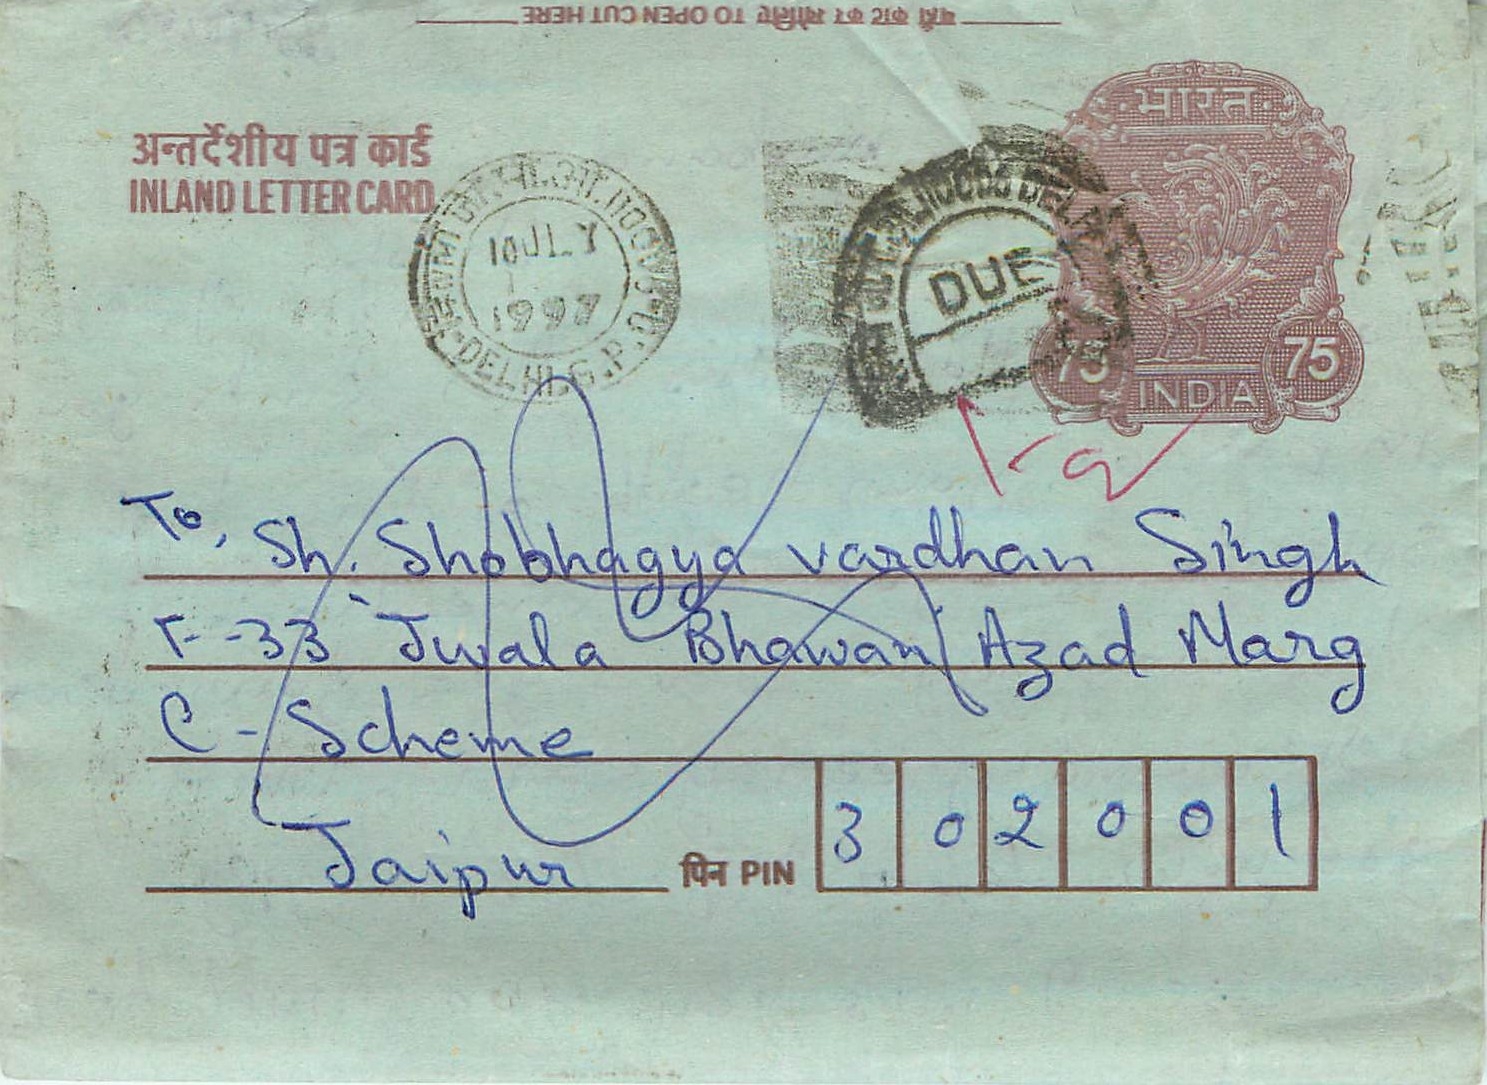 यहाँ काट कर खोलिए TO OPEN CUT HERE
भारत
अन्तर्देशीय पत्र कार्ड
INLAND LETTER CARD
10 JLY
1997
DELHI.G.P.O.
DUE
DELHI
75 75
INDIA
To, Sh. Shobhagya vardhan Singh
F-33 Jwala Bhawan Azad Marg
C-Scheme
Jaipur पिन PIN 302001